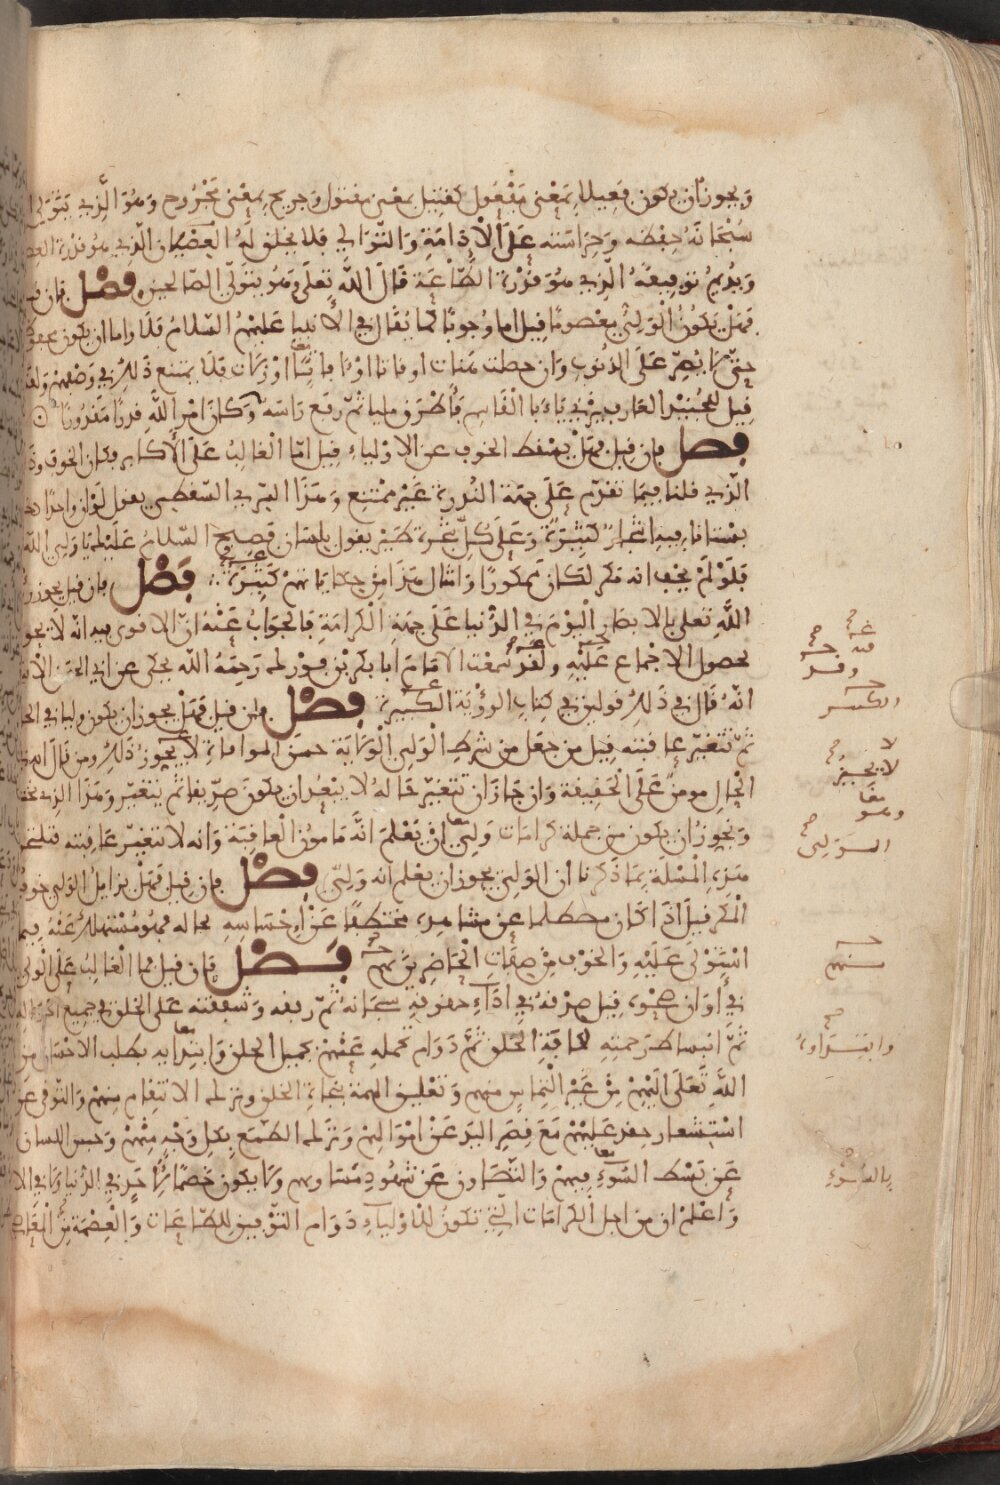 ويجوز ان يكون فعيلا بمعنى مفعول كقتيل بمعنى مقتول وجريح بمعنى مجروح وهو الذي يتولى
سبحانه حفظه وحراسته على الادامة والتوالي فلا يخلق له العصيان الذي هو قدرة
ويديم توفيقه الذي هو قدرة الطاعة قال الله تعلى وهو يتولى الصالحين فصل فان
فهل يكون الولي معصوما قيل اما وجوبا كما يقال في الانبيا عليهم السلام فلا واما ان يكون
حتى لا يصر على الذنوب وان حصلت هنات او فاتا او زلات فلا يمتنع ذلك في وصفهم
قيل للجنيد العارف يزني يا ابا القاسم فاطرق مليا ثم رفع راسه وكان امر الله قدرا مقدورا
فصل فان قيل فهل يسقط الخوف عن الاولياء قيل اما الغالب على الاكابر فكان الخوف
الذي قلنا فيما تقدم على جهة الندرة غير ممتنع وهذا السري السقطي يقول لو ان واحدا
بستانا فيه اشجار كثيرة وعلى كل شجرة طير يقول بلسان فصيح السلام عليك يا ولي الله
فلو لم يخف انه مكر لكان ممكورا وامثال هذا من حكاياتهم كثيرة فصل فان قيل يجوز
الله تعلى بالابصار اليوم في الدنيا على جهة الكرامة فالجواب عنه ان الاقوى فيه انه لا يجوز
بحصول الاجماع عليه ولقد سمعت الامام ابا بكر بن فورك رحمه الله يحكي عن ابي الحسن
انه قال في ذلك قولين في كتاب الرؤية الكبير فصل وان قيل فهل يجوز ان يكون وليا في
ثم تتغير عاقبته قيل من جعل من شرط الولي الولاية حسن الموافاة لا يجوز ذلك ومن قال
الحال مومن على الحقيقة وان جاز ان تتغير حاله لا يبعد ان يكون صديقا ثم يتغير وهذا الذي
ويجوز ان يكون من جملة كرامات ولي ان يعلم انه مامون العاقبة وانه لا تتغير عاقبته
هذه المسلة بما ذكرنا ان الولي يجوز ان يعلم انه ولي فصل فان قيل فهل يزايل الولي خوف
المكر قيل اذا كان مصطلما عن شاهده مختطفا عن احساسه بحاله فهو مستهلك عنه فيما
استولى عليه والخوف من صفات الحاضرين بهم فصل فان قيل فما الغالب على الولي
في اوان صحوه قيل صدقه في اداء حقوقه سبحانه ثم رفقه وشفقته على الخلق في جميع
ثم انبساط رحمته لكافة الخلق ثم دوام تحمله عنهم بجميل الخلق وابتدايه بطلب الاحسان من
الله تعلى اليهم من غير التماس منهم وتعليق الهمة بنجاة الخلق وترك الانتقام منهم والتوقي عن
استشعار حقد عليهم مع قصر اليد عن اموالهم وترك الطمع بكل وجه منهم وحبس اللسان
عن بسط السوء فيهم والتصاون عن شهود مساويهم ولا يكون خصما لاحد في الدنيا ولا في
واعلم ان من اجل الكرامات التي تكون للاولياء دوام التوفيق للطاعات والعصمة عن
لا يجيز
معا
وهو
الولي
منهم
وابتداؤه
بالسوء